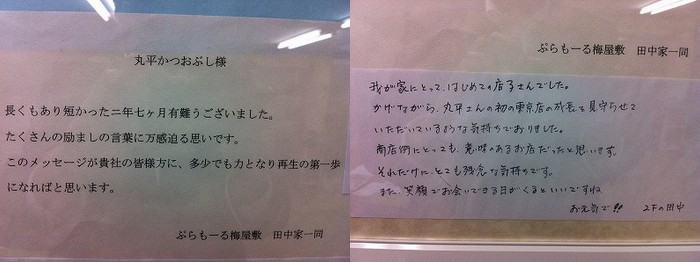 丸平かつおぶし様
長くもあり短かった二年七ヶ月有難うございました。
たくさんの励ましの言葉に万感迫る思いです。
このメッセージが貴社の皆様方に、多少でも力となり再生の第一歩
になればと思います。
ぷらもーる梅屋敷 田中家一同
ぷらもーる梅屋敷 田中家一同
我が家にとって、はじめての店子さんでした。
かげながら、丸平さんの初の東京店の成長を見守らせて
いただいているような気持ちでおりました。
商店街にとっても、意味のあるお店だったと思います。
それだけに、とても残念な気持ちです。
また、笑顔でお会いできる日がくるといいですね
お元気で!! 2Fの田中